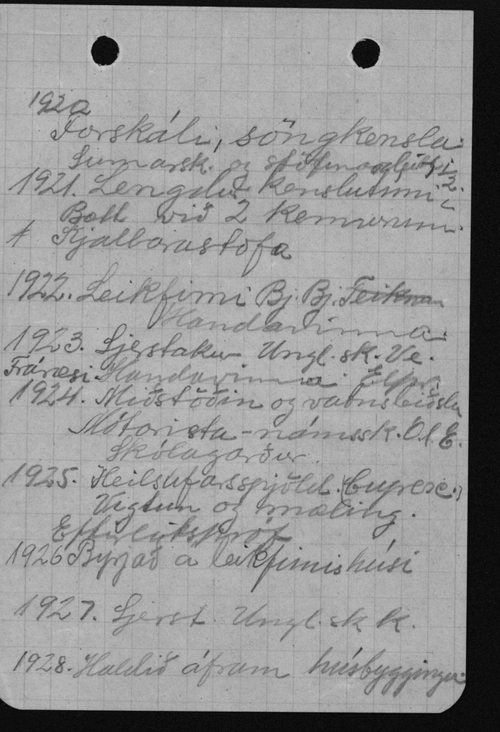 1920
Forskáli, söngkensla.
Sumarsk. og
1921. Lengdur kenslutími
Bætt við 2 kennurum.
+ Fjalborastofa
1922. Leikfimi Bj. Bj. Teiknun
Handavinna.
1923. Sjerstakur Ungl. sk. Ve.
Fráræsi. Handavinna
1924. Miðstöðin og vatnsleiðsla
Mótorista-námssk. Ól. E.
Skólagarður.
1925. Heilsufarsspjöld.
Vigtun og mæling.
Eftirlitspróf
1926 Byrjað á leikfimishúsi
1927. Sjerst. Ungl. sk k.
1928. Haldið áfram húsbyggingu